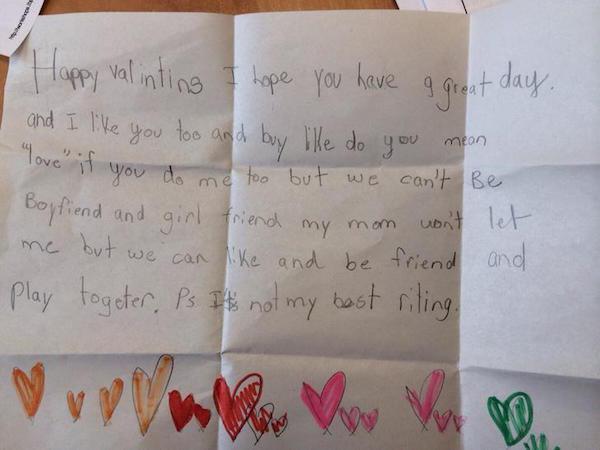 Happy valintins I hope you have a great day.
and I like you too and buy like do you mean
"love" if you do me too but we can't Be
Boyfiend and girl friend my mom won't let
me but we can like and be friend and
play togeter. Ps It's not my best riting.